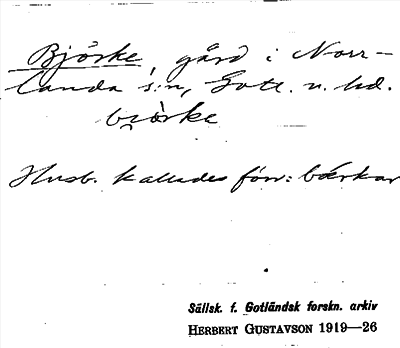 Björke, gård i Norr-
landa s:n, Gotl. n. hd.
bjòrke
Husb. kallades förr: bǽrkar
Sällsk. f. Gotländsk forskn. arkiv
HERBERT GUSTAVSON 1919—26